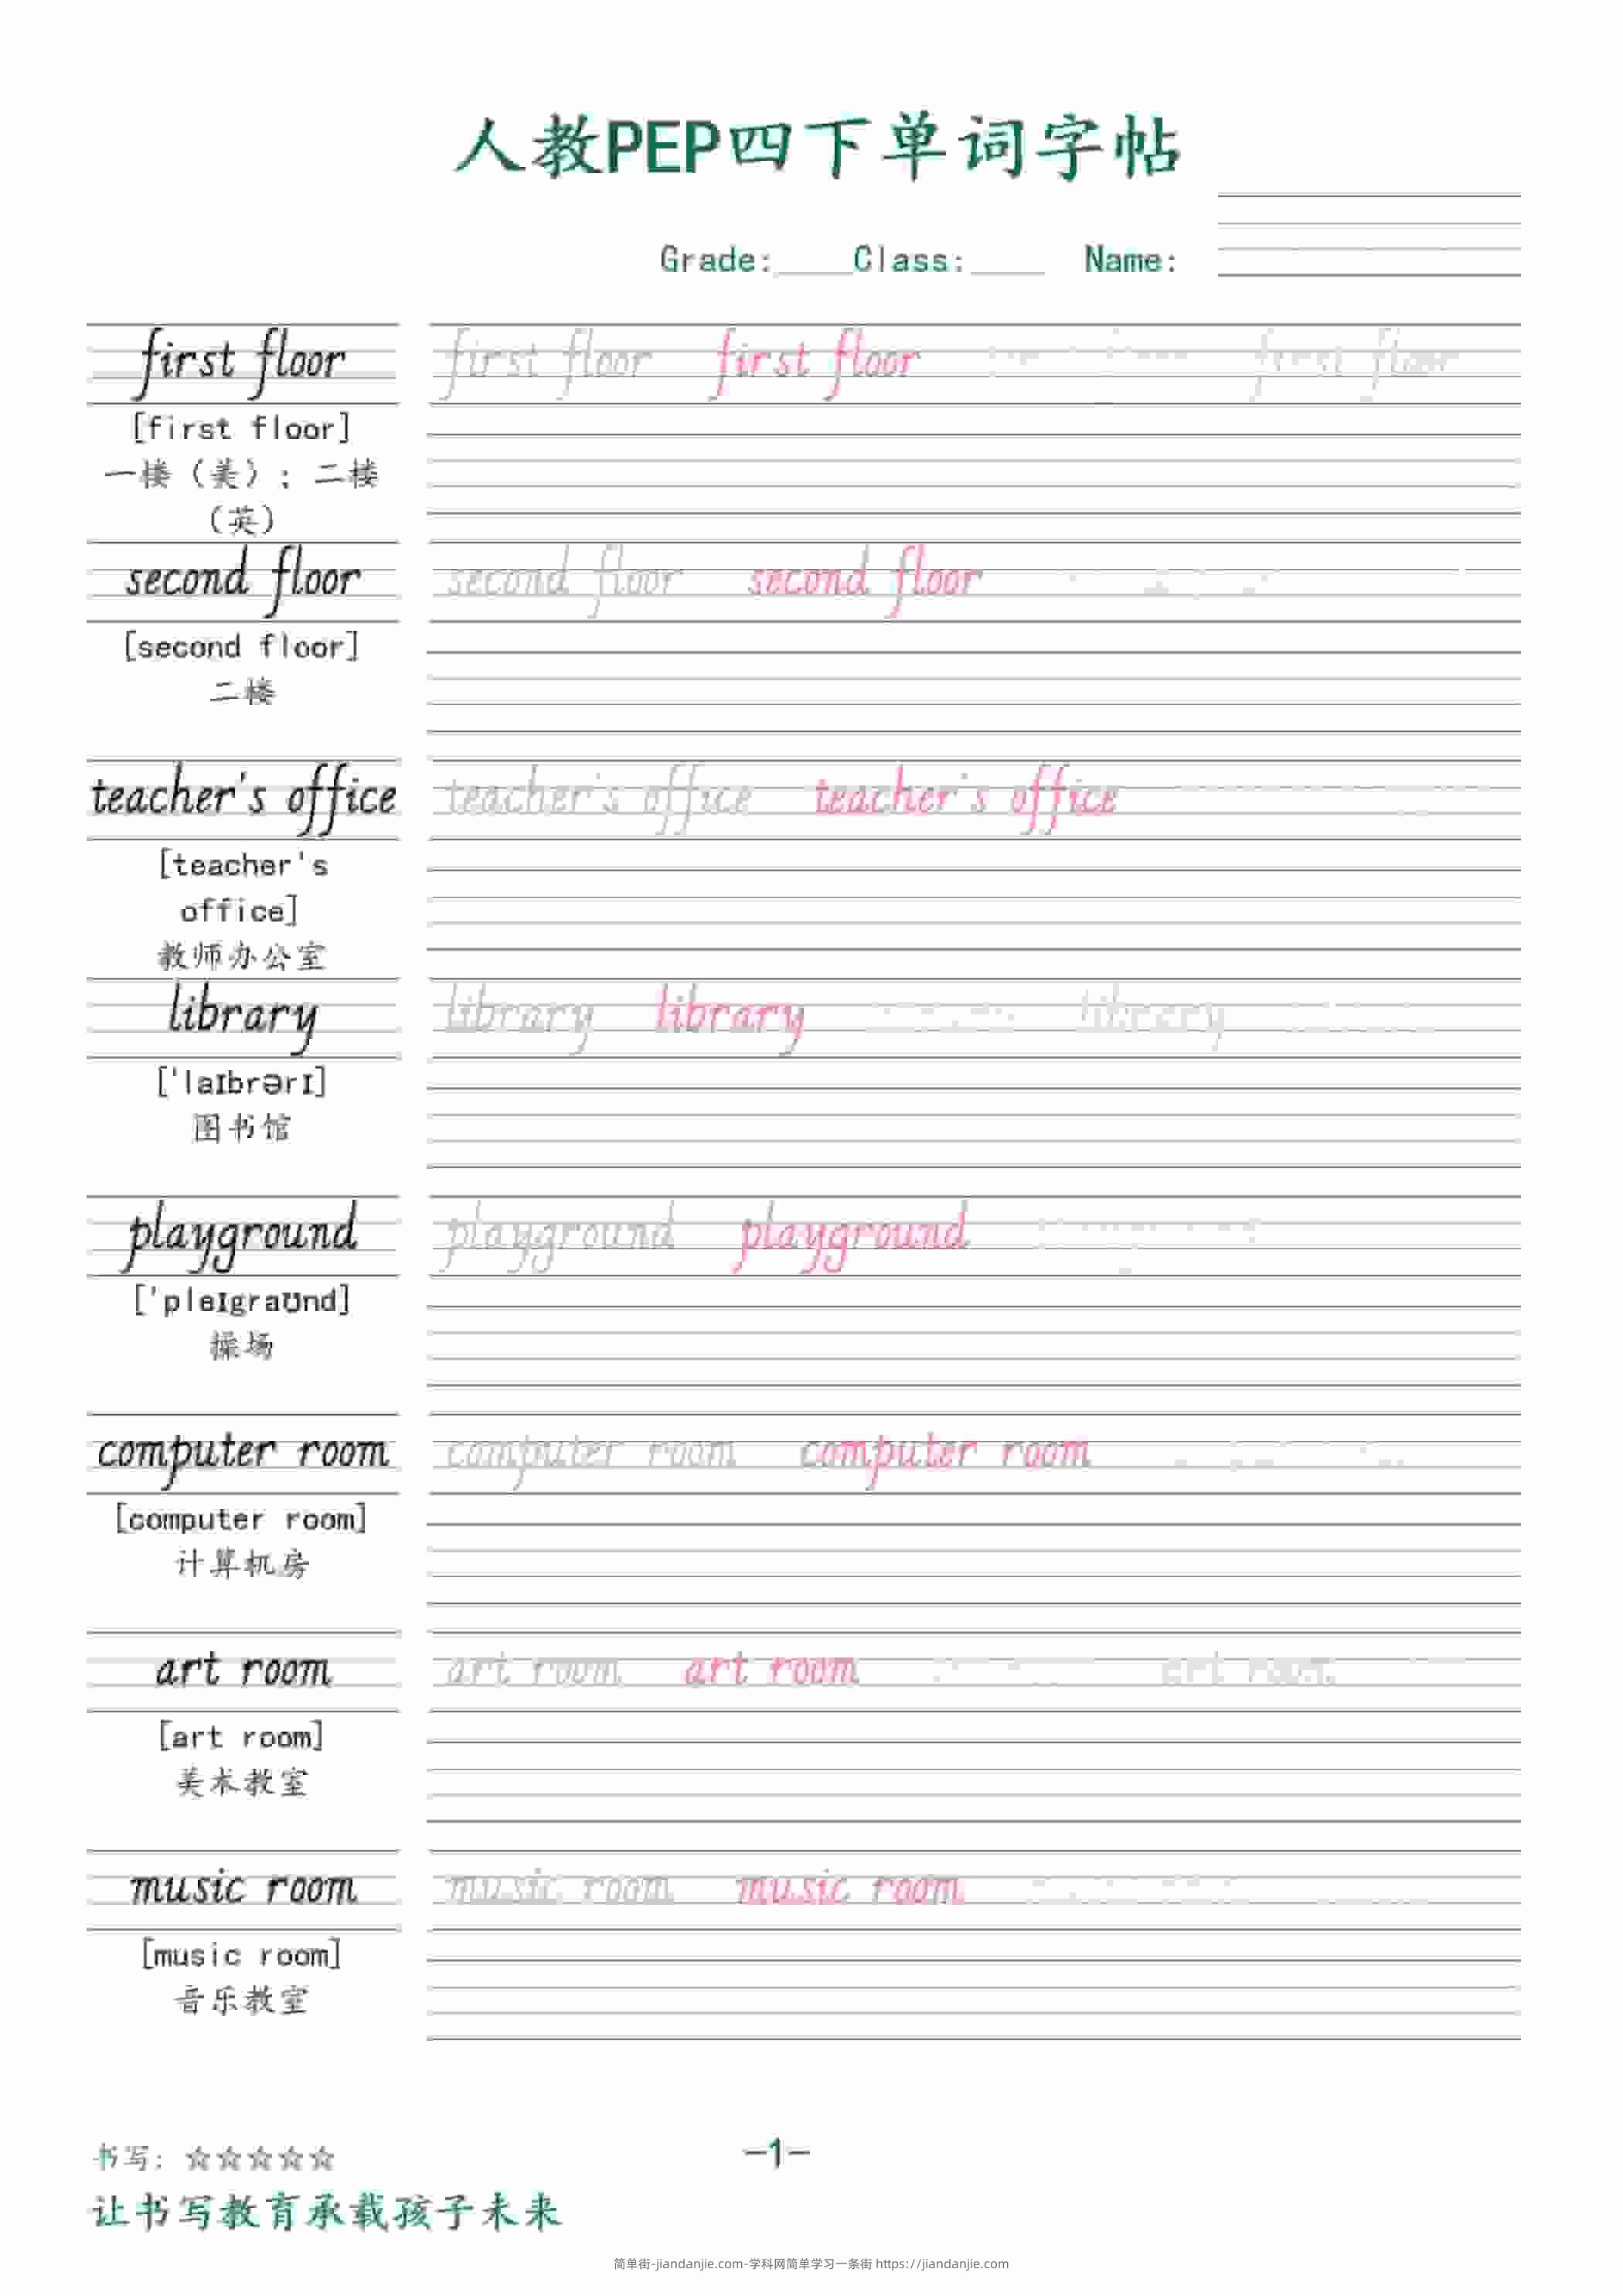 人教PEP四下单词字帖
Grade:____Class:____ Name:
first floor first floor first floor first floor
[first floor]
一楼（美）；二楼
（英）
second floor second floor second floor
[second floor]
二楼
teacher's office teacher's office teacher's office
[teacher's
office]
教师办公室
library library library library
['laɪbrərɪ]
图书馆
playground playground playground
['pleɪgraʊnd]
操场
computer room computer room computer room
[computer room]
计算机房
art room art room art room art room
[art room]
美术教室
music room music room music room
[music room]
音乐教室
书写：☆☆☆☆☆
-1-
让书写教育承载孩子未来
简单街-jiandanjie.com-学科网简单学习一条街 https://jiandanjie.com